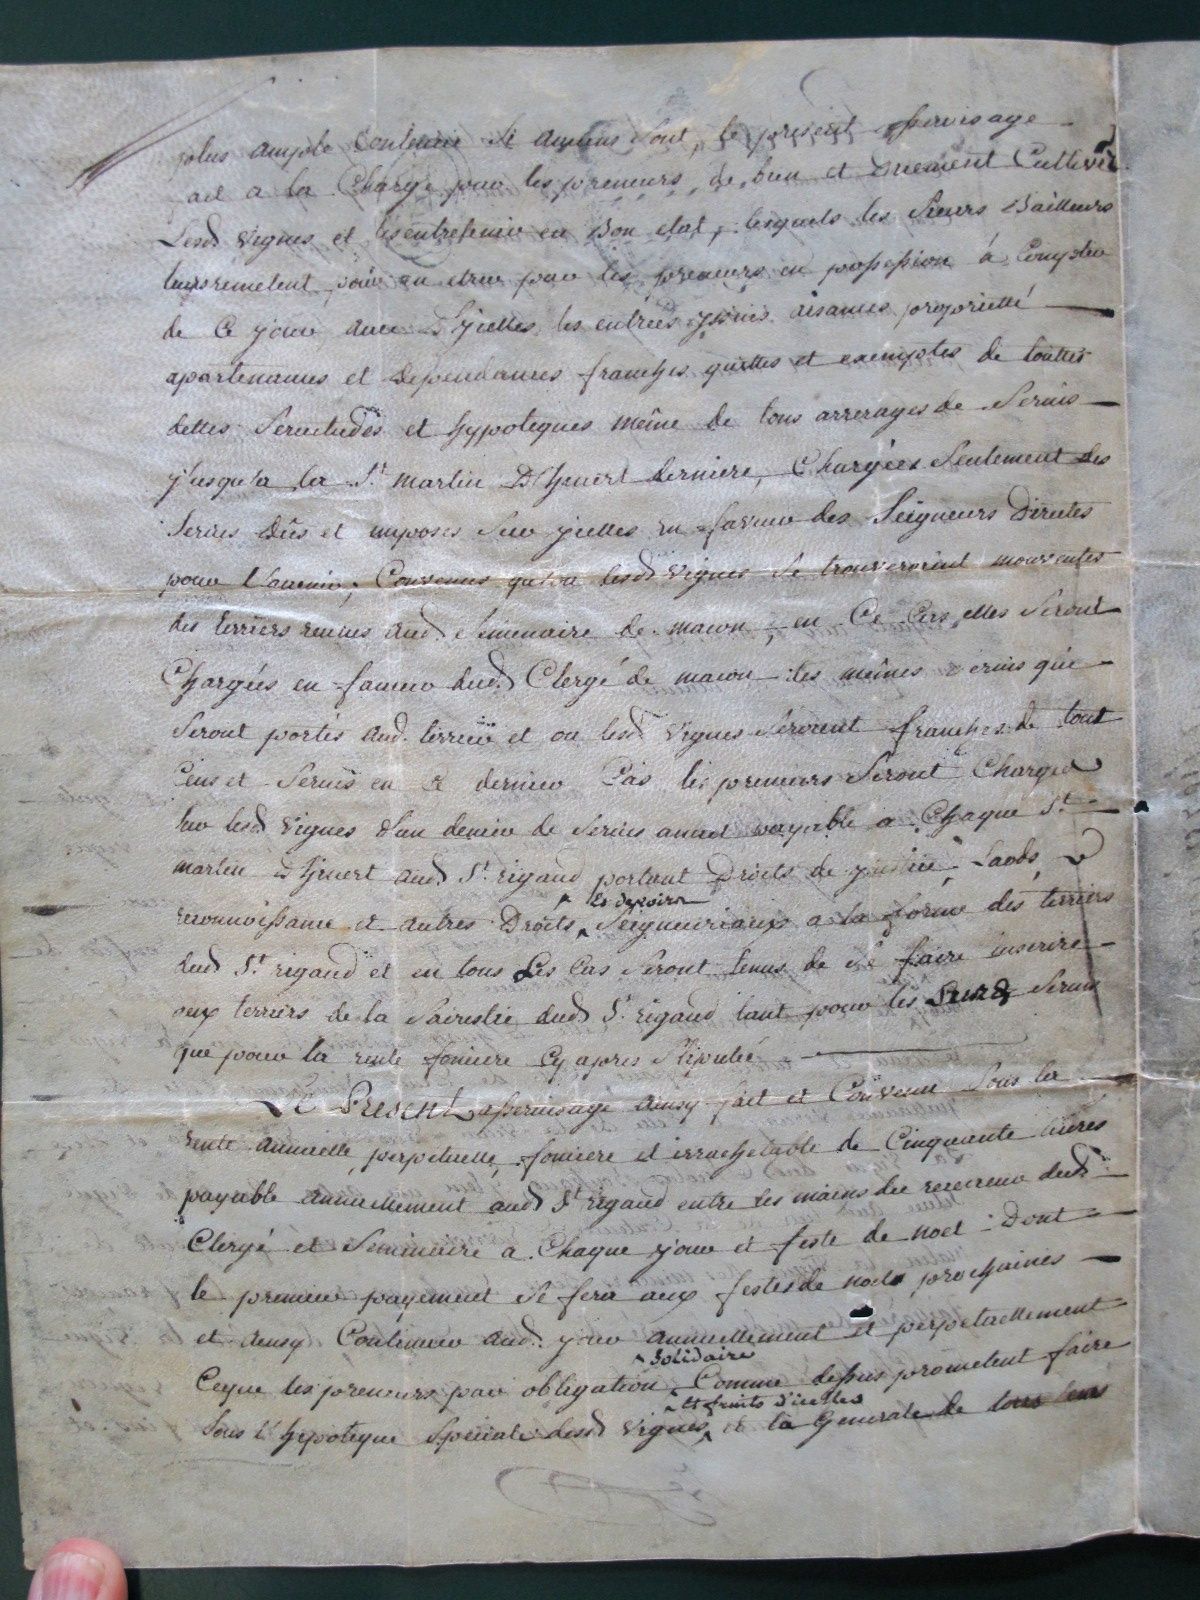 plus ample contenüe si aucuns sont, le present asservisage
fait a la Charge pour les preneurs, de bien et duement Cultiver
Lesd. vignes et les entretenir en Bon etat, lesquels les Sieurs Bailleurs
leurs remetent pour en etre par les preneurs en possession a Compter
de Ce jour avec D'ycelles les entrées yssües aisances proprietté
apartenances et dependances franches quittes et exemptes de touttes
dettes Servitudes et hypoteques même de tous arrerages de Servis
jusqu'a la St. martin D'hyvert derniere, Chargées Seulement des
Servis dûs et imposés Sur ycelles en faveur des Seigneurs Directes
pour l'avenir, Convenus qu'ou lesd. vignes Se trouveroient mouventes
des terriers remis aud. Seminaire de macon, en Ce Cas elles Seront
Chargées en faveur dud. Clergé de macon des mêmes servis qui
Seront portés aud. terrier et ou lesd. vignes Seroient franches de tout
Cens et Servis en ce dernier Cas les preneurs Seront Chargés
Sur lesd. vignes d'un denier de Servis annuel payable a Chaque St.
martin D'hyvert aud. St. rigaud portant Droits de justice, Laods,
reconnoissance et autres Droits ^ Es devoirs Seigneuriaux a la forme des terriers
dud. St. rigaud et en tous Les Cas Seront tenus de Se faire inscrire
aux terriers de la Sairestie dud. St. rigaud tant pour les Servis
que pour la rente fonciere Cy apres Stipulée
Le Present asservisage ainsy fait et Convenu Sous la
rente annuelle, perpetuelle, fonciere et irrachetable de Cinquante livres
payable annuellement aud. St. rigaud entre les mains du receveur dud.
Clergé et Seminaire a Chaque jour et feste de noel Dont
le premier payement Se fera aux festes de noel prochaines
et ainsy Continuer aud. jour annuellement et perpetuellement
Ceque les preneurs par obligation ^ Solidaire Comme dessus prometent faire
Sous l'hypoteque Speciale desd. vignes ^ et fruits d'icelles et la Generale de tous leurs